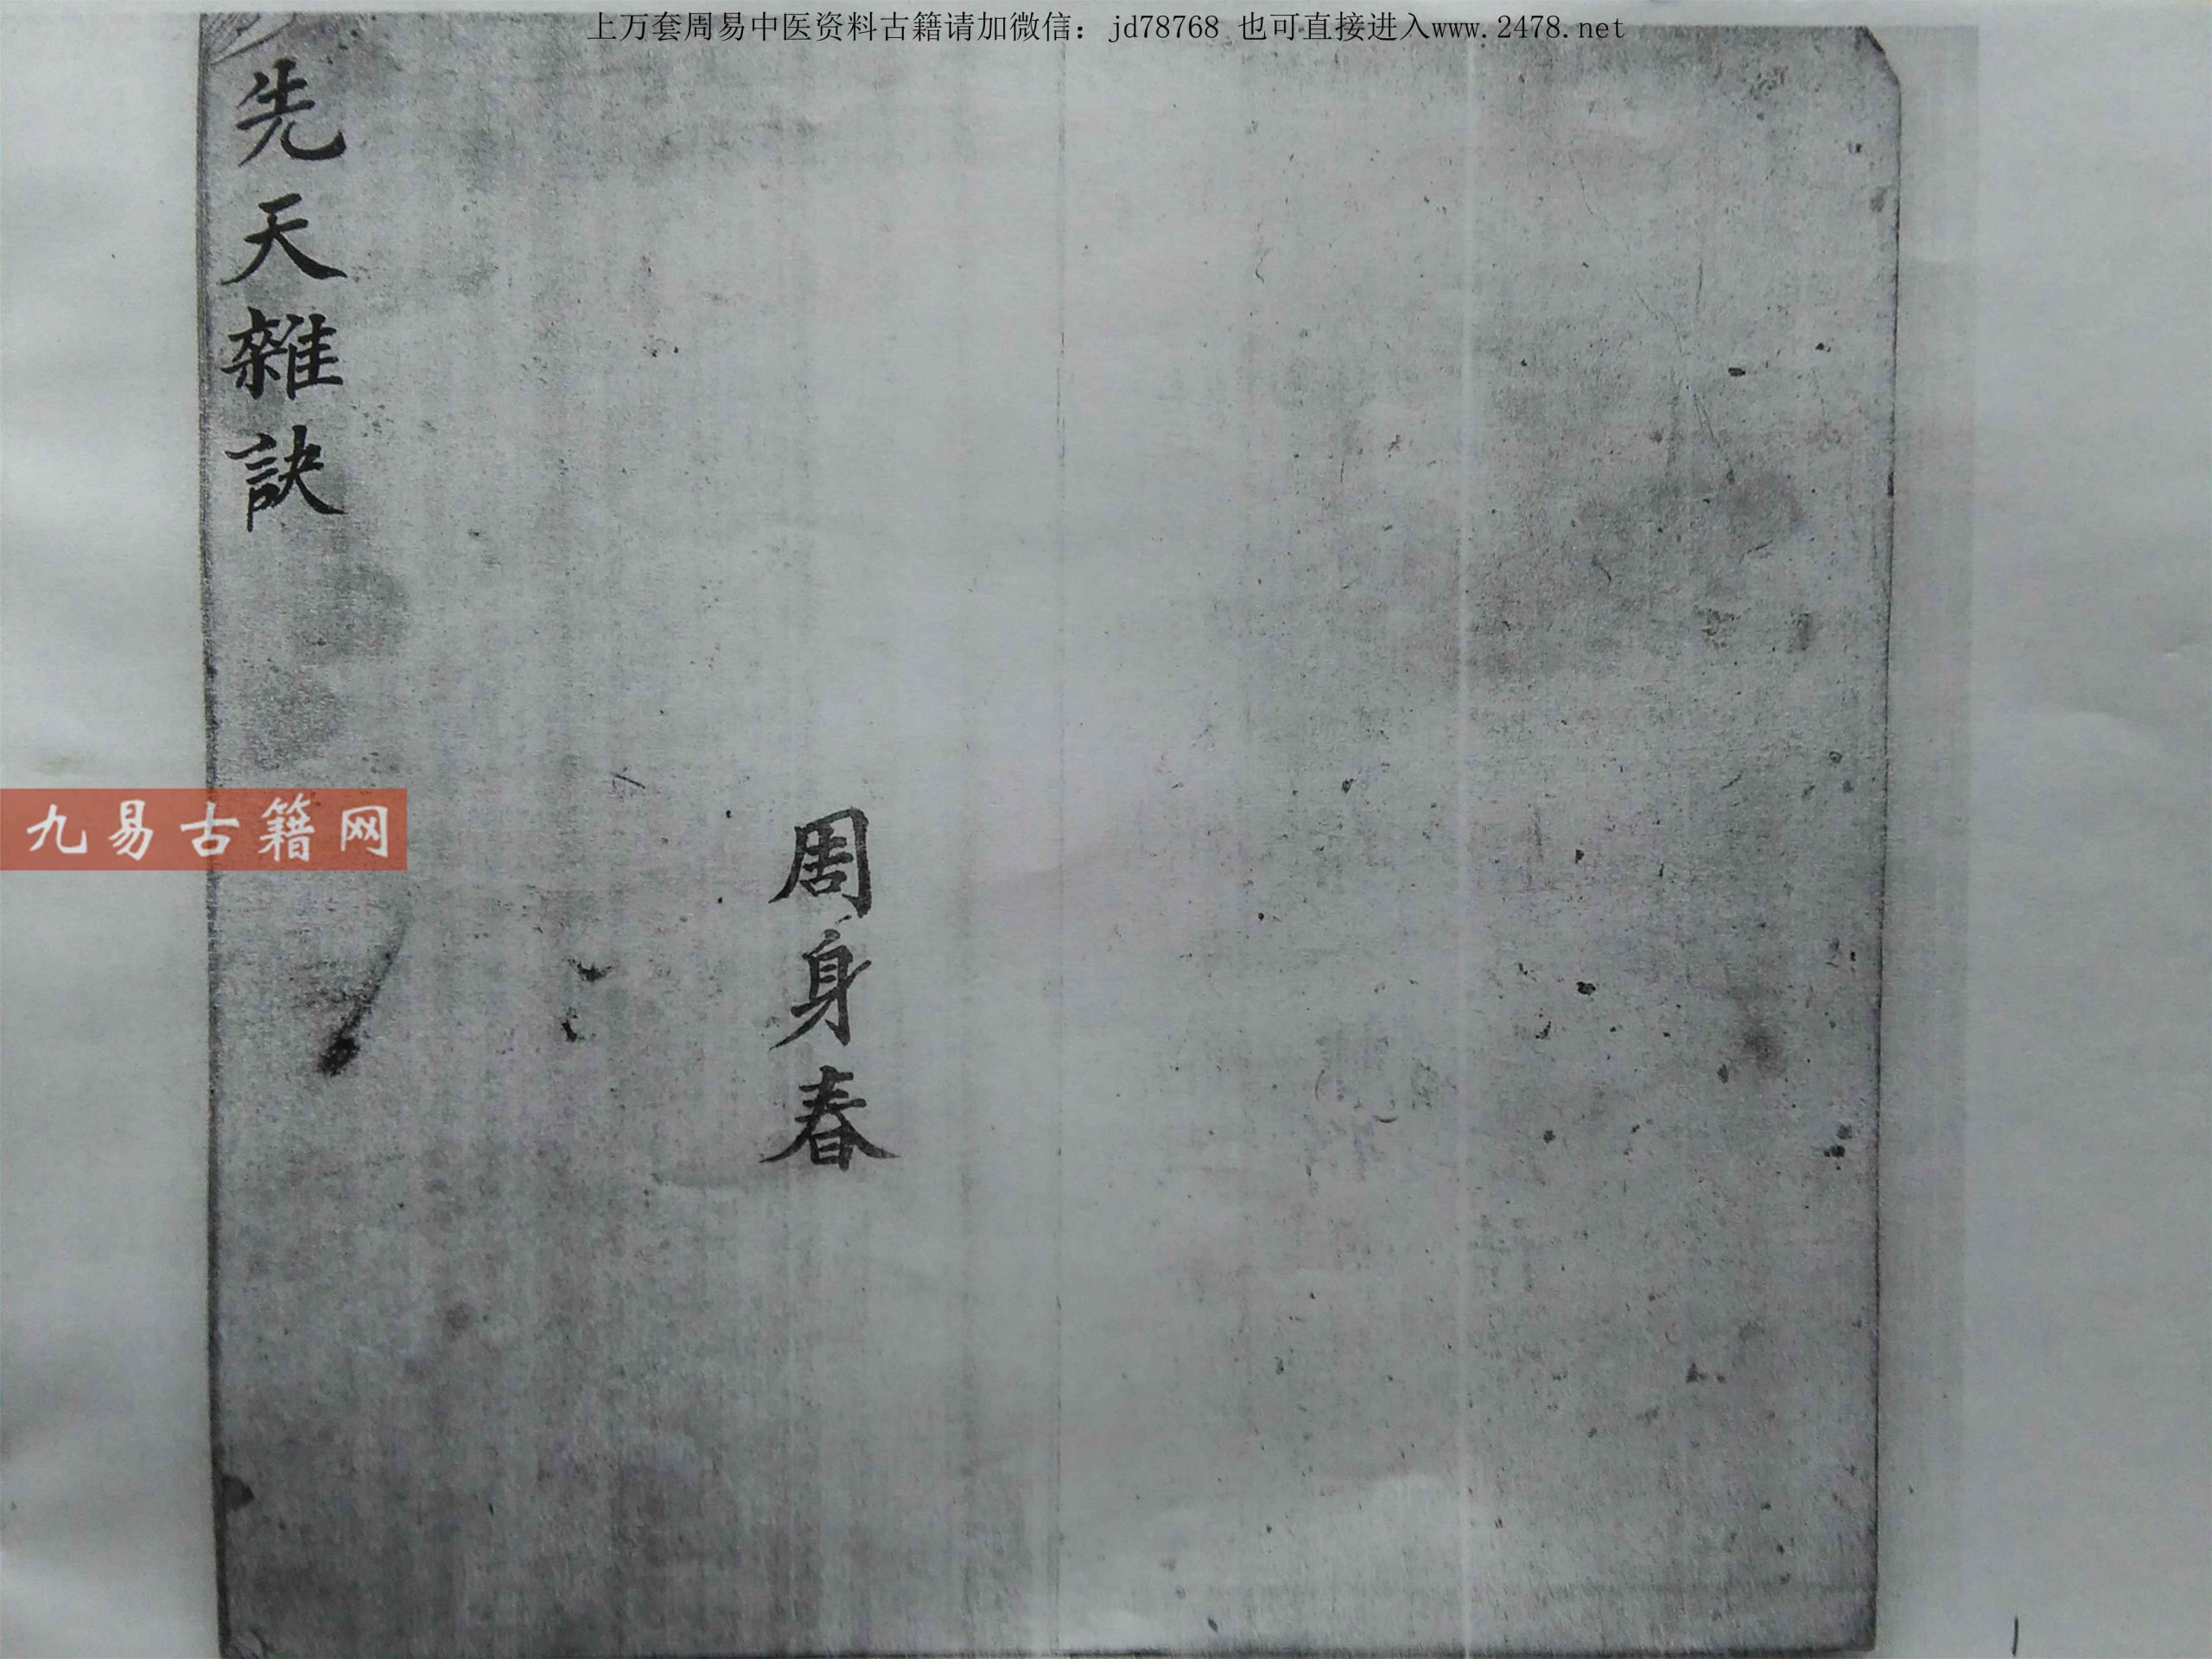 上万套周易中医资料古籍请加微信：jd78768 也可直接进入www.2478.net
先天雜訣
九易古籍网
周身春